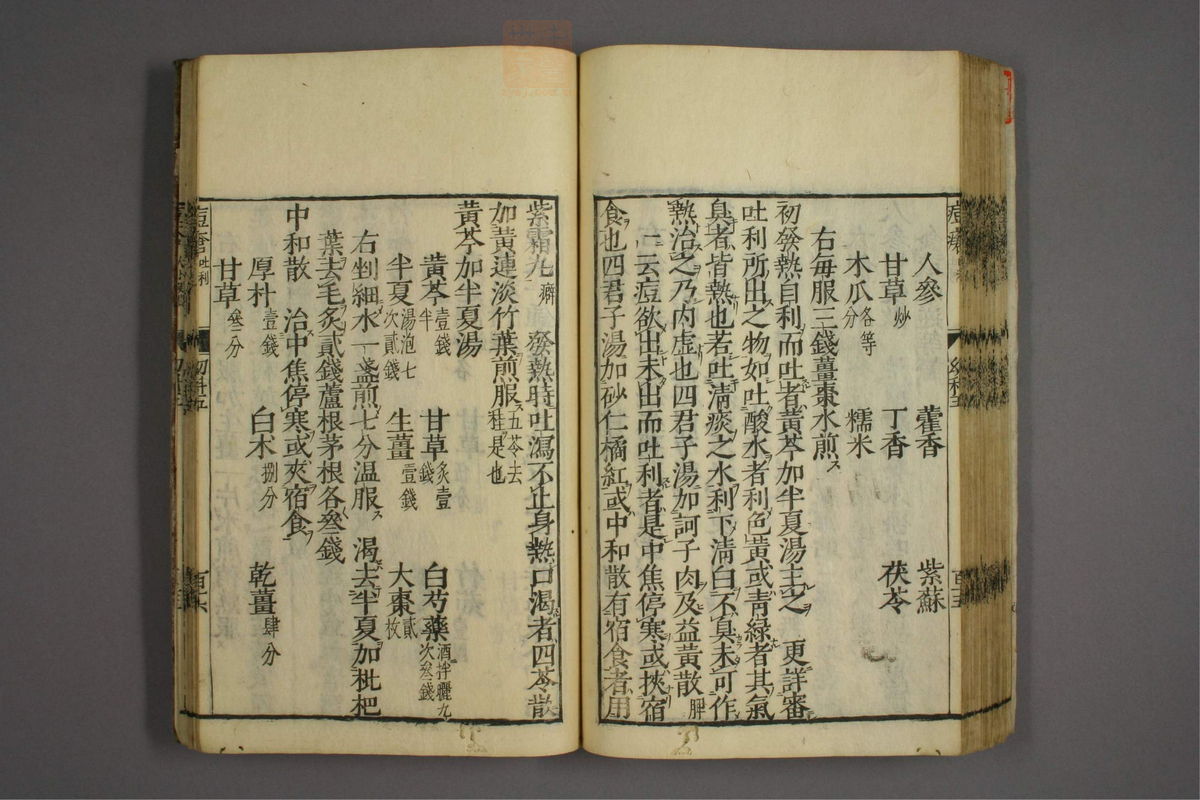 人參 藿香 紫蘇
甘草炒 丁香 茯苓
木瓜各等分 糯米
右每服三錢薑棗水煎ス
初發熱自利而吐者黃芩加半夏湯主之 更詳審
吐利所出之物如吐酸水者利色黃或青綠者其氣
臭者皆熱也若吐清痰之水利下清白不臭未可作
熱治之乃內虛也四君子湯加訶子肉及益黃散脾
一云痘欲出未出而吐利者是中焦停寒或挾宿
食也四君子湯加砂仁橘紅或中和散有宿食者用
紫霜丸癖 發熱時吐瀉不止身熱口渴者四苓散
加黃連淡竹葉煎服五苓去桂是也
黃芩加半夏湯
黃芩壹錢半 甘草炙壹錢 白芍藥酒拌曬九次叄錢
半夏湯泡七次貳錢 生薑壹錢 大棗貳枚
右剉細水一盞煎七分温服ス 渴去半夏加枇杷
葉去毛炙貳錢蘆根茅根各叄錢
中和散 治中焦停寒或夾宿食
厚朴壹錢 白朮捌分 乾薑肆分
甘草叄分
痘瘡吐利 幼科五 百十六